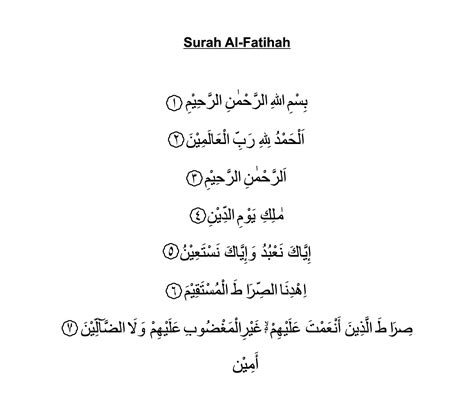 Surah Al-Fatihah
بِسْمِ اللهِ الرَّحْمٰنِ الرَّحِيْمِ ۝١
اَلْحَمْدُ لِلهِ رَبِّ الْعَالَمِيْنَ ۝٢
اَلرَّحْمٰنِ الرَّحِيْمِ ۝٣
مٰلِكِ يَوْمِ الدِّيْنِ ۝٤
إِيَّاكَ نَعْبُدُ وَإِيَّاكَ نَسْتَعِيْنُ ۝٥
اِهْدِنَا الصِّرَا طَ الْمُسْتَقِيْمَ ۝٦
صِرَا طَ الَّذِينَ أَنْعَمْتَ عَلَيْهِمْ ۙ غَيْرِ الْمَغْضُوبِ عَلَيْهِمْ وَلَا الضَّآلِّيْنَ ۝٧
أَمِيْن